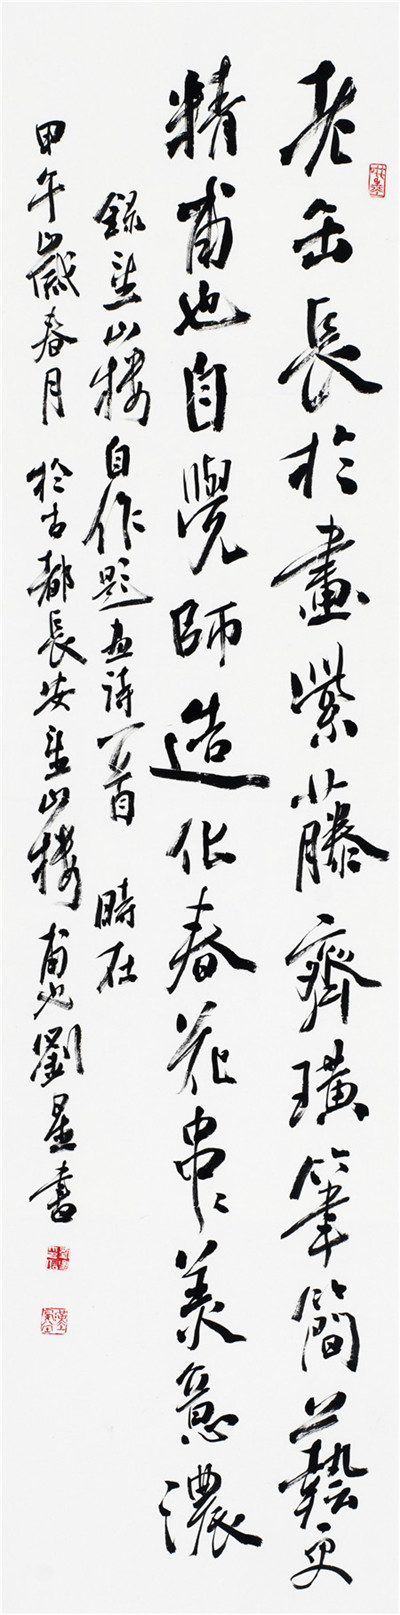 老缶長於畫紫藤齊璜筆簡藝更
精甫也自覺師造化春花串々美意濃
錄望山樓自作題画詩一首 時在
甲午歲春月於古都長安望山樓甫也劉星書